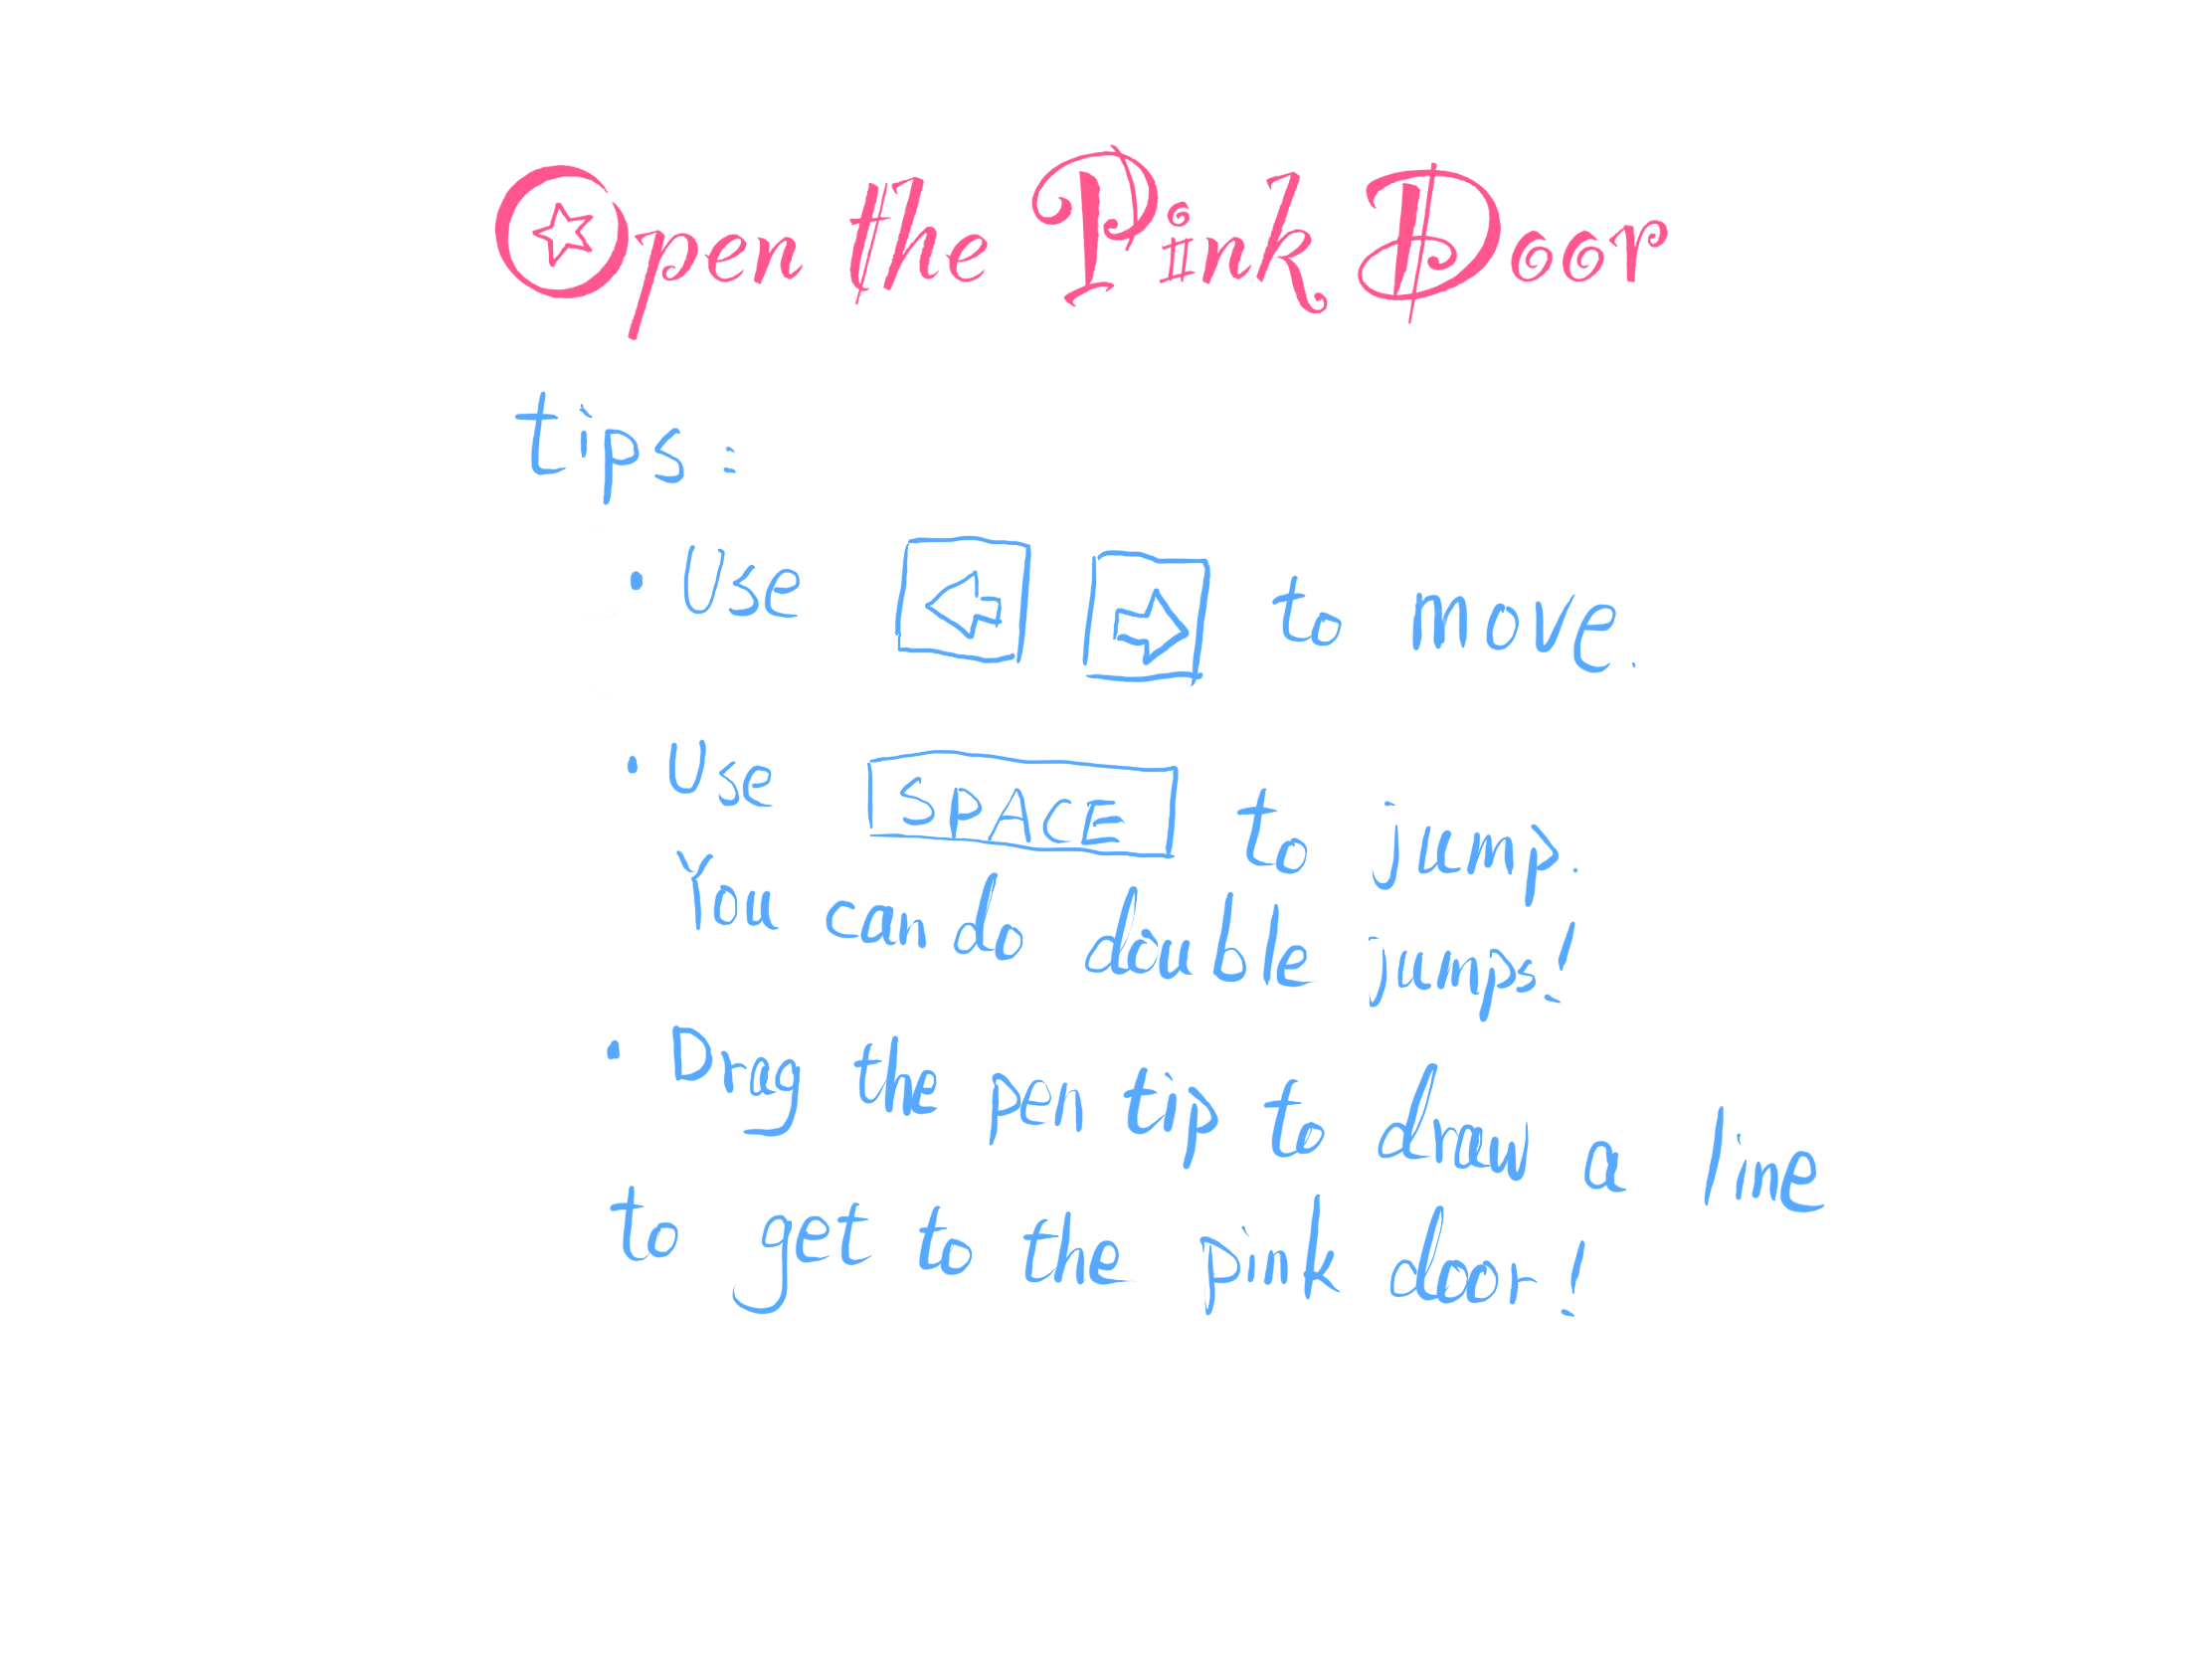 Open the Pink Door
tips:
• Use ← → to move.
• Use SPACE to jump.
You can do double jumps!
• Drag the pen tip to draw a line
to get to the pink door!